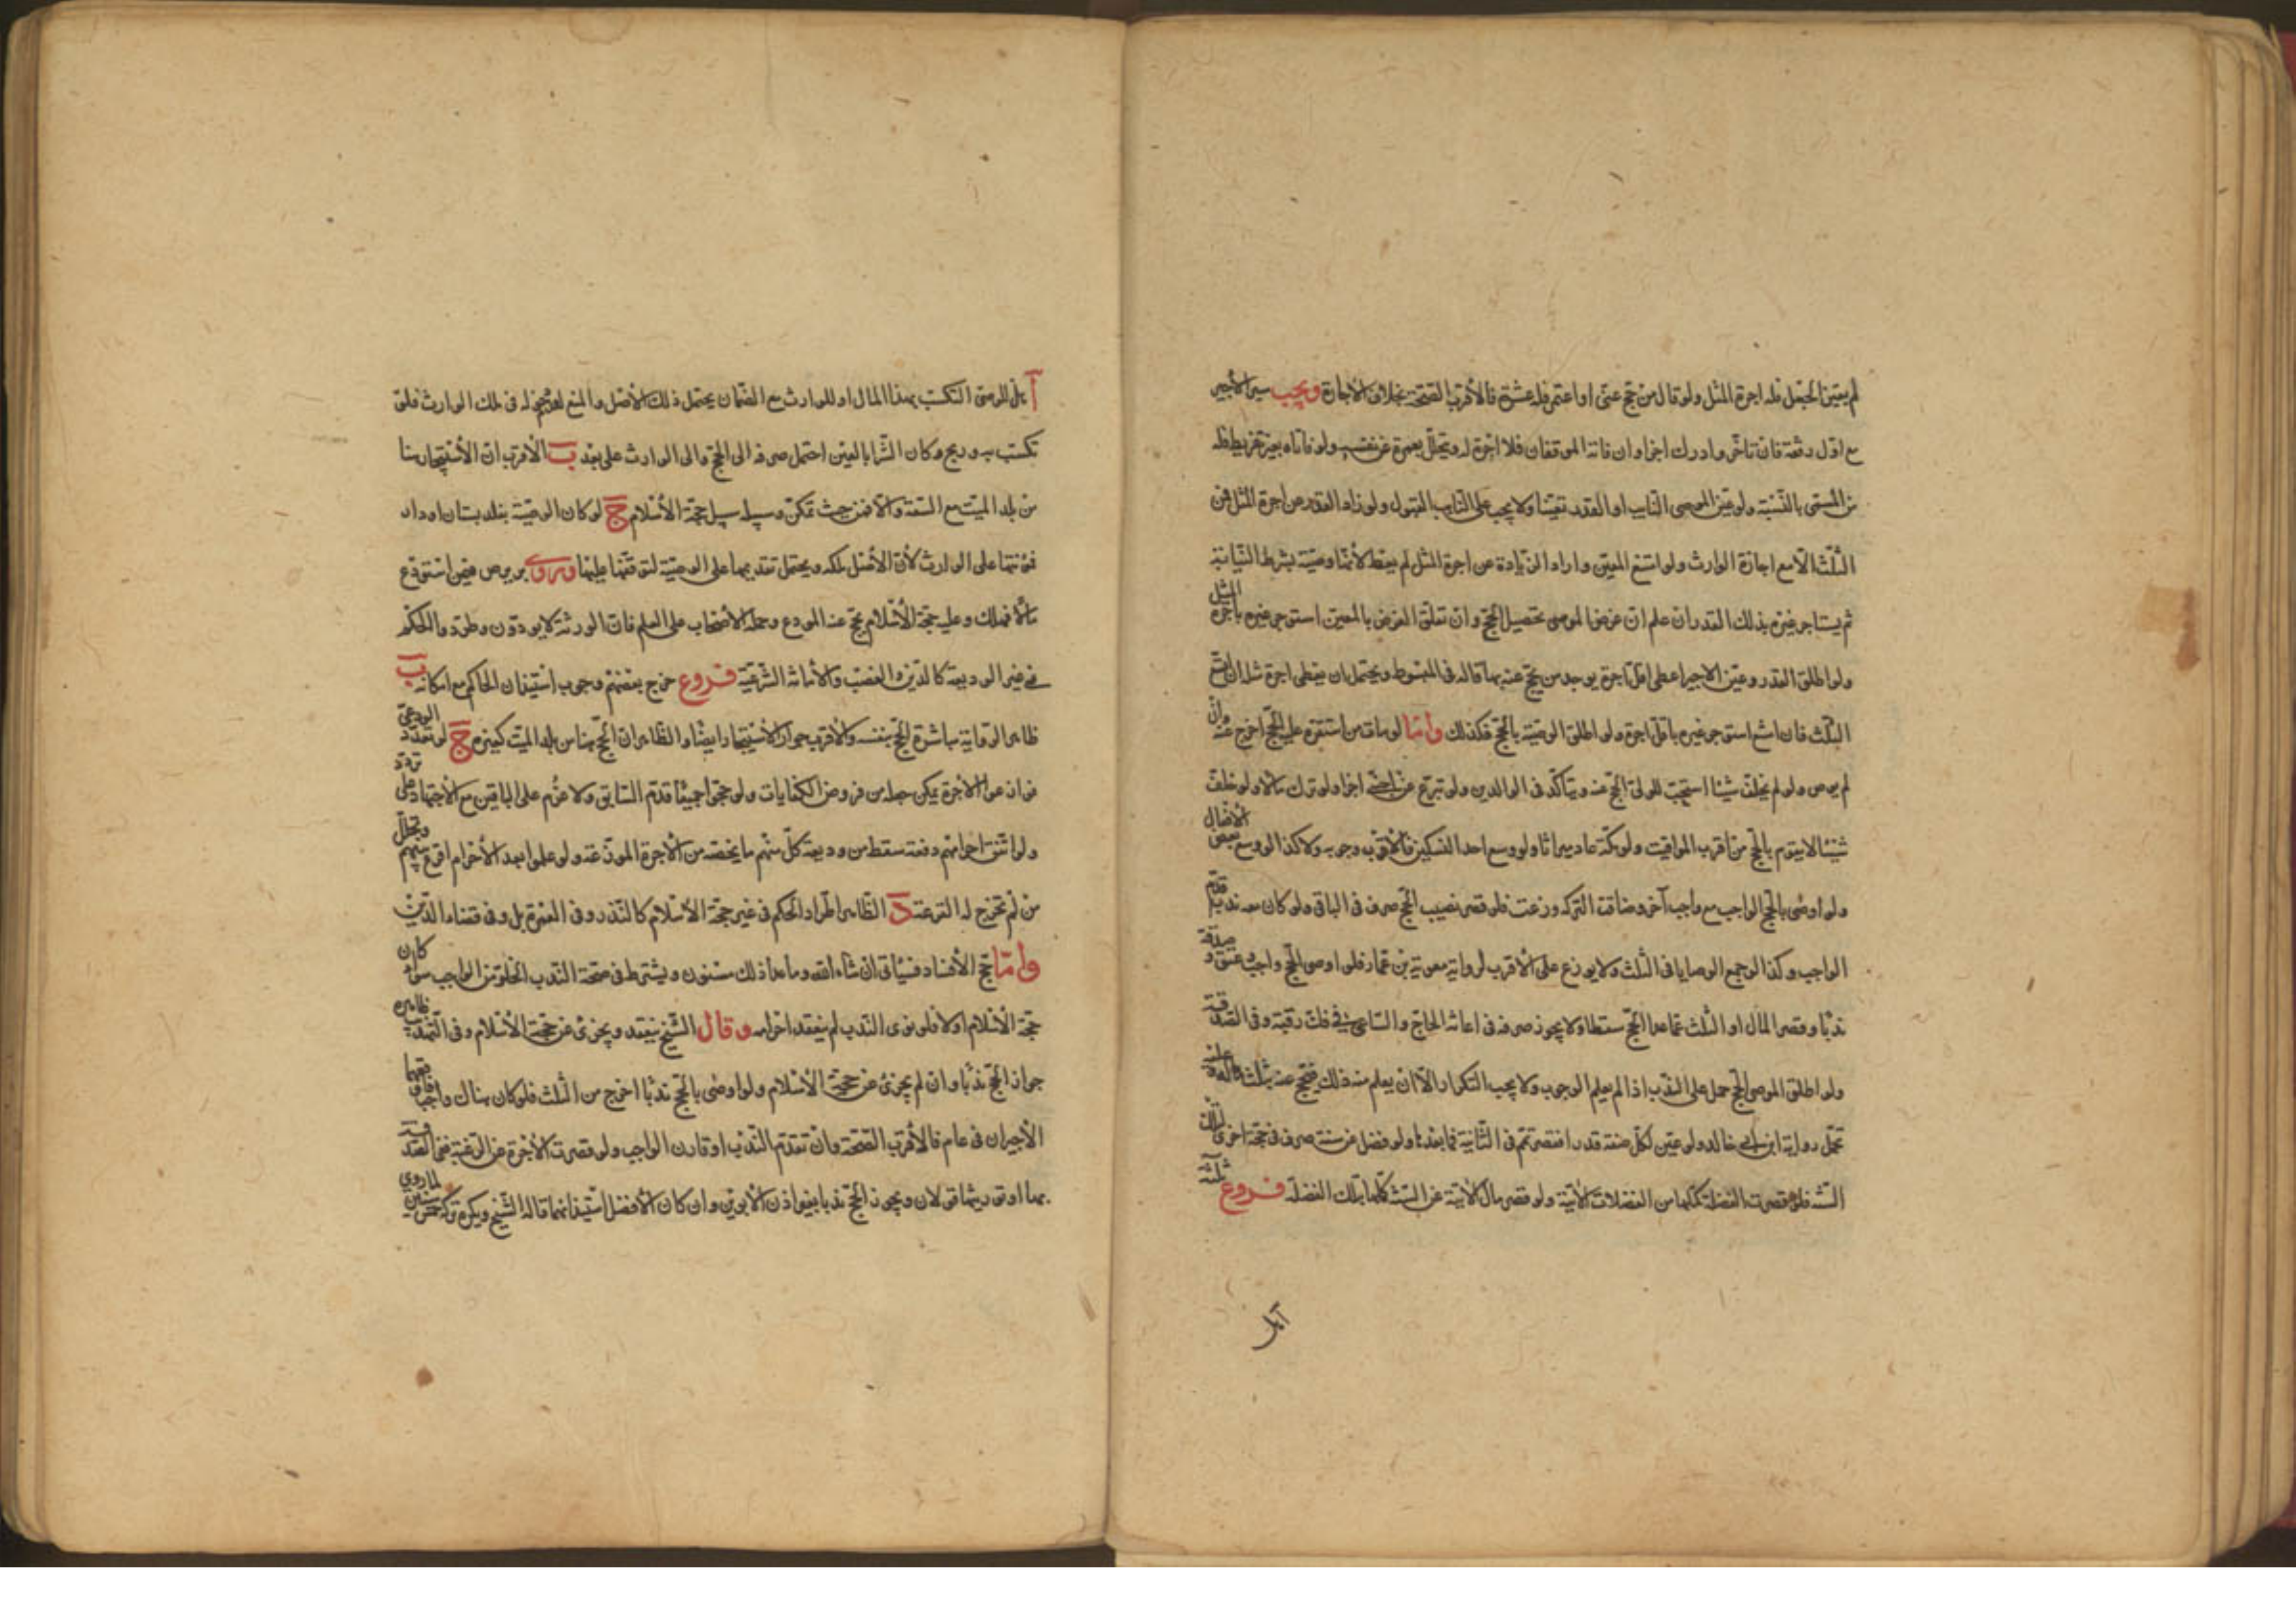 لم يعين الجعل فله اجرة المثل ولو قال من حج عني او اعتمر فله عشرة فالأقرب الصحة بخلاف الاجارة ويجب سير الأجير
مع اول رفقة فان تأخر وادرك اجزا وان فاته الموقفان فلا اجرة له ويتحلل بعمرة عن نفسه ولو فاتاه بغير تفريط فله
من المسمى بالنسبة ولو عين الموصى النايب او القدر تعينا ولا يجب على النايب القبول ولو زاد القدر عن اجرة المثل فمن
الثلث الا مع اجازة الوارث ولو امتنع المعين واراد الزيادة عن اجرة المثل لم يعط لأنها وصية بشرط النيابة
ثم يستاجر غيره بذلك القدر ان علم ان غرض الموصى تحصيل الحج وان تعلق الغرض بالمعين استوجر غيره باجرة المثل
ولو اطلق القدر وعين الاجير اعطى اقل اجرة يوجد من يحج عنه بها قاله في المبسوط ويحتمل ان يعطى اجرة مثله ان اتسع
الثلث فان امتنع استوجر غيره باقل اجرة ولو اطلق الوصية بالحج فكذلك واما لو مات من استقر عليه الحج اخرج عنه وان
لم يوص ولو لم يخلف شيئا استحب للولي الحج عنه ويتاكد في الوالدين ولو تبرع عنه اجنبي اجزا ولو ترك مالا ولو خلف
شيئا لا يقوم بالحج من اقرب المواقيت ولو مكة عاد ميراثا ولو وسع احد النسكين فالأقرب وجوبه ولا كذا لو وسع بعض الأفعال
ولو اوصى بالحج الواجب مع واجب آخر وضاقت التركة وزعت فلو قصر نصيب الحج صرف في الباقي ولو كان معه ندب قدم
الواجب وكذا لو جمع الوصايا في الثلث ولا يوزع على الأقرب لرواية معوية بن عمار فلو اوصى بحج واجب وعتق وصدقة
ندبا وقصر المال او الثلث عما عدا الحج سقطا ولا يجوز صرفه في اعانة الحاج والساعي في فك رقبة وفي الصدقة
ولو اطلق الموصى الحج حمل على الندب اذا لم يعلم الوجوب ولا يجب التكرار الا ان يعلم منه ذلك فيحج عنه بثلثه
تحمل رواية ابن ابي خالد ولو عين لكل سنة قدرا فقصر تمم في الثانية فما بعدها ولو فضل عن سنة صرف في حجة اخرى في تلك
السنة فلو قصرت الفضلة كملها من الفضلات الآتية ولو قصر مال الآتية عن السنة كلها بتلك الفضلة فروع ثلثة
آ هل للوصي التكسب بهذا المال او للوارث مع الضمان يحتمل ذلك للأصل والمنع لعدم دخوله في ملك الوارث فلو
تكسب به وربح وكان الشراء بالعين احتمل صرفه الى الحج والى الوارث على بعد ب الأقرب ان الأستيجار هنا
من بلد الميت مع السعة والا فمن حيث تمكن وسبيله سبيل حجة الأسلام ج لو كان الوصية بغلة بستان او دار
فمؤنتها على الوارث لأن الأصل ملكه ويحتمل تقديمها على الوصية لتوقفها عليها وروى بريد في من استودع
مالا فهلك وعليه حجة الأسلام يحج عنه المودع وحمله الأصحاب على العلم فان الورثة لا يودون وطرد والحكم
في غير الوديعة كالدين والغصب والأمانة الشرعية فروع خرج بعضهم وجوب استيذان الحاكم مع امكانه ب
ظاهر الرواية مباشرة الحج بنفسه والأقرب جواز الأستيجار ايضا والظاهر ان الحج هنا من بلد الميت كغيره ج لو تعدد الودعي
فوزعوا الأجرة يمكن جعله من فروض الكفايات ولو حجوا جميعا قدم السابق ولا غرم على الباقين مع الأجتهاد على تردد
ولو اتفق احرامهم دفعة سقط من وديعة كل منهم ما يخصه من الأجرة الموزعة ولو علموا بعد الأحرام اقرع بينهم وتحلل
من لم تخرج له القرعة د الظاهر اطراد الحكم في غير حجة الأسلام كالنذر وفي العمرة بل وفي قضاء الدين
واما حج الأفساد فسياتي ان شاء الله وما عدا ذلك مسنون ويشترط في صحة الندب الخلو من الواجب سواء كان
حجة الأسلام او لا فلو نوى الندب لم ينعقد احرامه وقال الشيخ ينعقد ويجزئ عن حجة الأسلام وفي التهذيب ظاهره
جواز الحج ندبا وان لم يجزئ عن حجة الأسلام ولو اوصى بالحج ندبا اخرج من الثلث فلو كان هناك واجب
الأجيران في عام فالأقرب الصحة وان تقدم الندب او قارن الواجب ولو قصرت الأجرة عن الرغبة ففي الصدقة
بها او توريثها قولان ويجوز الحج ندبا بغير اذن الأبوين وان كان الأفضل استيذانهما قاله الشيخ ويكره تركه خمس سنين لما روي